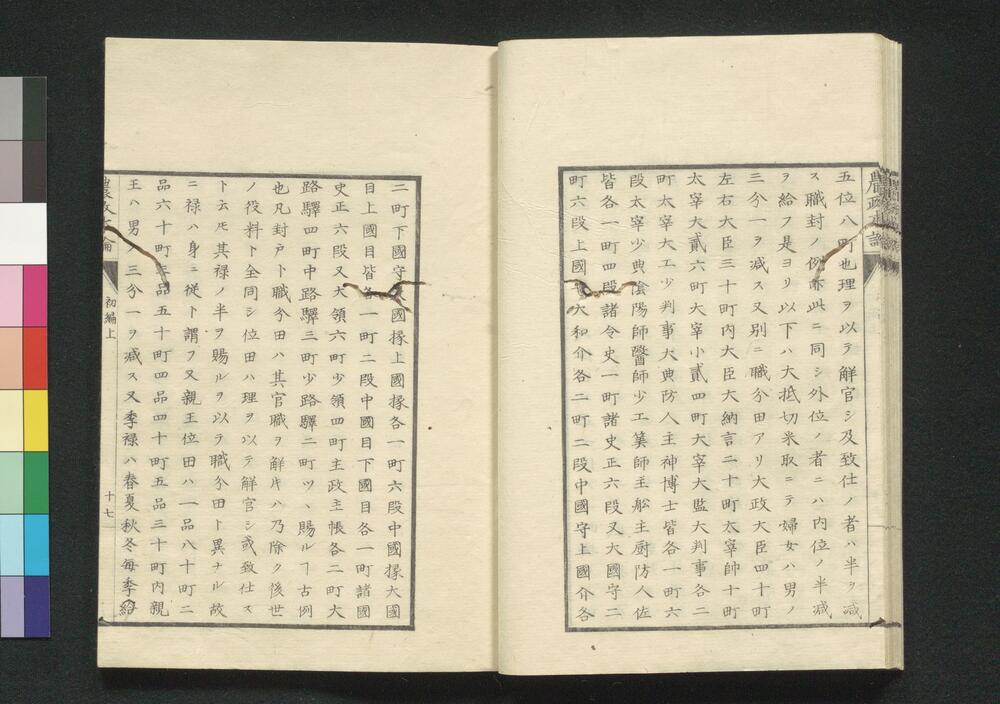 五位八町也理ヲ以テ解官シ及致仕ノ者ハ半ヲ減
ス職封ノ例亦此ニ同シ外位ノ者ニハ内位ノ半減
ヲ給フ是ヨリ以下ハ大抵切米取ニテ婦女ハ男ノ
三分一ヲ減ス又別ニ職分田アリ大政大臣四十町
左右大臣三十町内大臣大納言二十町太宰帥十町
太宰大貳六町大宰小貳四町大宰大監大判事各二
町太宰大工少判事大典防人主神博士皆各一町六
段太宰少典陰陽師醫師少工筭師主舩主廚防人佐
皆各一町四段諸令史一町諸史正六段又大國守二
町六段上國守大和介各二町二段中國守上國介各
二町下國守大國掾上國掾各一町六段中國掾大國
目上國目皆各一町二段中國目下國目各一町諸國
史正六段又大領六町少領四町主政主帳各二町大
路驛四町中路驛三町少路驛二町ツヽ賜ルヿ古例
也凡封戸ト職分田ハ其官職ヲ解キハ乃除ク後世
ノ役料ト全同シ位田ハ理ヲ以テ解官シ或致仕ス
ト云𪜈其禄ノ半ヲ賜ルヲ以テ職分田ト異ナル故
ニ禄ハ身ニ従ト謂フ又親王位田ハ一品八十町二
品六十町三品五十町四品四十町五品三十町内親
王ハ男ノ三分一ヲ減ス又季禄ハ春夏秋冬毎季給
初編上
十七